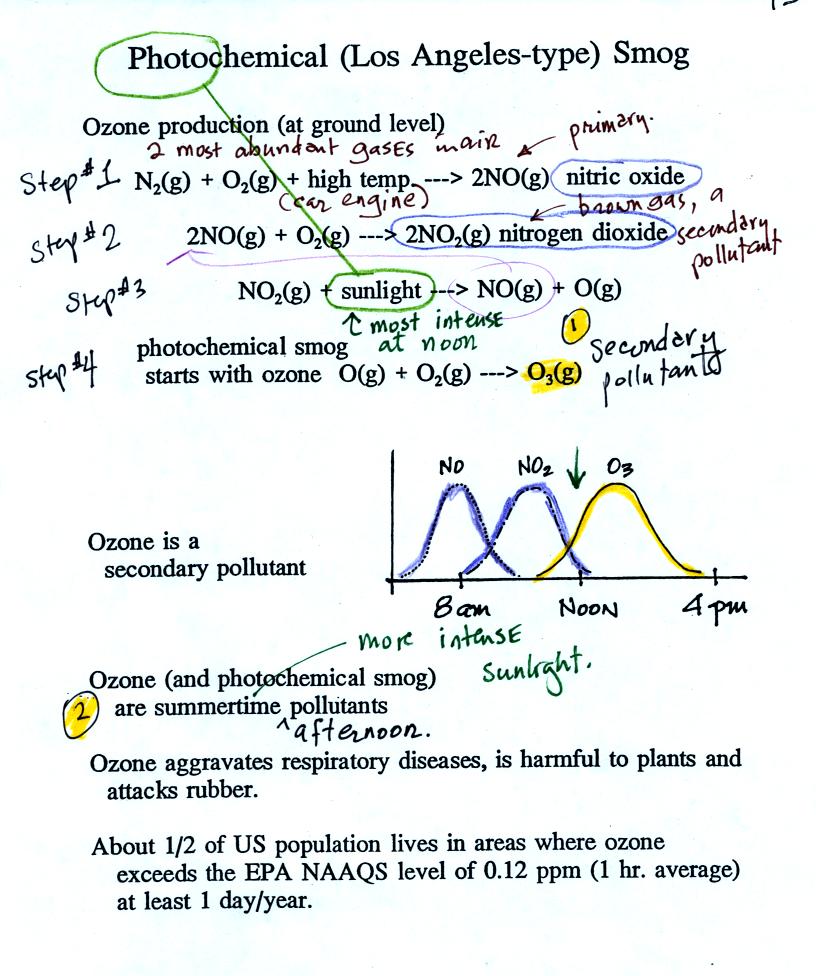 Photochemical (Los Angeles-type) Smog
Ozone production (at ground level)
primary.
2 most abundant gases in air
Step #1 N₂(g) + O₂(g) + high temp. ---> 2NO(g) nitric oxide
(car engine)
brown gas, a
Step #2 2NO(g) + O₂(g) ---> 2NO₂(g) nitrogen dioxide secondary
pollutant
Step #3 NO₂(g) + sunlight ---> NO(g) + O(g)
↑ most intense
at noon
1
photochemical smog
secondary
Step #4 starts with ozone O(g) + O₂(g) ---> O₃(g) pollutant
NO NO₂ ↓ O₃
Ozone is a
secondary pollutant
8 am NOON 4 pm
more intense
sunlight.
Ozone (and photochemical smog)
2 are summertime pollutants
^ afternoon.
Ozone aggravates respiratory diseases, is harmful to plants and
attacks rubber.
About 1/2 of US population lives in areas where ozone
exceeds the EPA NAAQS level of 0.12 ppm (1 hr. average)
at least 1 day/year.